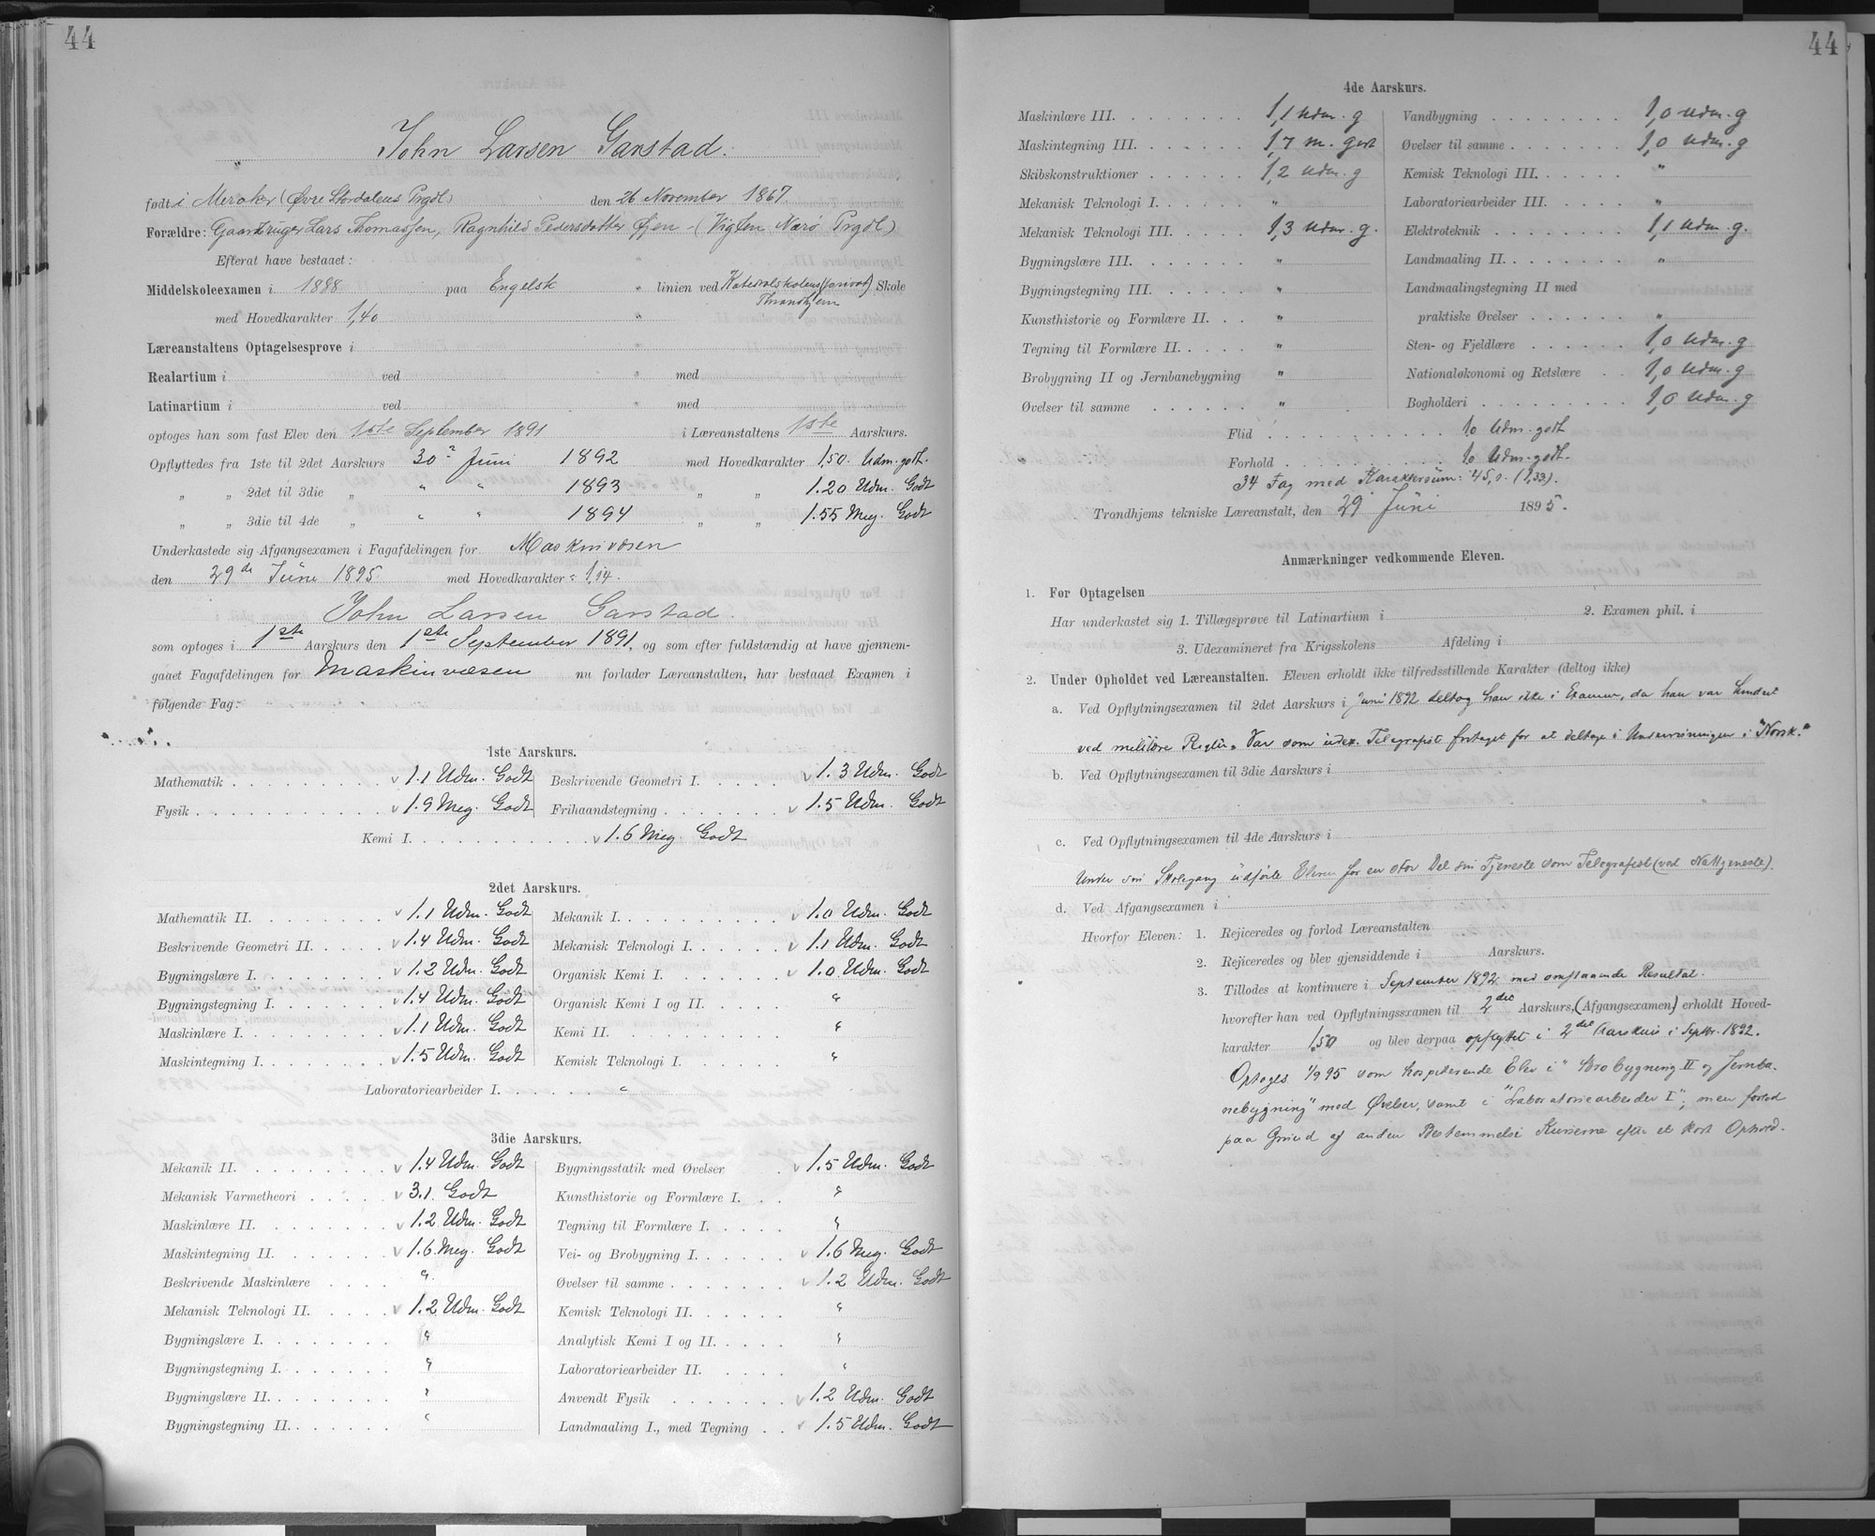 44
John Larsen Garstad.
født i Meraker (Øvre Stordalens Prgdl) den 26 November 1867
Forældre: Gaardbruger Lars Thomassen, Ragnhild Pedersdatter Øien - (Vigten Nærø Prgdl)
Efterat have bestaaet:
Middelskoleexamen i 1888 paa Engelsk " linien ved Katedralskolens (privat) Skole
Throndhjem
med Hovedkarakter 1,40 "
Læreanstaltens Optagelsesprøve i
Realartium i ved " med
Latinartium i ved " med
optoges han som fast Elev den 1ste September 1891 i Læreanstaltens 1ste Aarskurs.
Opflyttedes fra 1ste til 2det Aarskurs 30 Juni 1892 med Hovedkarakter 1,50. Udm. godt.
" " 2det til 3die " " " 1893 " " 1.20 Udm. Godt
" " 3die til 4de " " " 1894 " " 1.55 Meg. Godt
Underkastede sig Afgangsexamen i Fagafdelingen for Maskinvæsen
den 29de Juni 1895 med Hovedkarakter: 1,14.
John Larsen Garstad.
som optoges i 1ste Aarskurs den 1ste September 1891, og som efter fuldstændig at have gjennem-
gaaet Fagafdelingen for Maskinvæsen nu forlader Læreanstalten, har bestaaet Examen i
følgende Fag:
1ste Aarskurs.
Mathematik v 1.1 Udm. Godt Beskrivende Geometri I. v 1.3 Udm. Godt
Fysik v 1.9 Meg. Godt Frihaandstegning v 1.5 Udm. Godt
Kemi I. v 1.6 Meg. Godt
2det Aarskurs.
Mathematik II. v 1.1 Udm. Godt Mekanik I. v 1.0 Udm. Godt
Beskrivende Geometri II. v 1.4 Udm. Godt Mekanisk Teknologi I. v 1.1 Udm. Godt
Bygningslære I. v 1.2 Udm. Godt Organisk Kemi I. v 1.0 Udm. Godt
Bygningstegning I. v 1.4 Udm. Godt Organisk Kemi I og II. "
Maskinlære I. v 1.1 Udm. Godt Kemi II. "
Maskintegning I. v 1.5 Udm. Godt Kemisk Teknologi I. "
Laboratoriearbeider I. "
3die Aarskurs.
Mekanik II. v 1.4 Udm. Godt Bygningsstatik med Øvelser v 1.5 Udm. Godt
Mekanisk Varmetheori v 3.1 Godt Kunsthistorie og Formlære I. "
Maskinlære II. v 1.2 Udm. Godt Tegning til Formlære I. "
Maskintegning II. v 1.6 Meg. Godt Vei- og Brobygning I. v 1.6 Meg. Godt
Beskrivende Maskinlære " Øvelser til samme v 1.2 Udm. Godt
Mekanisk Teknologi II. v 1.2 Udm. Godt Kemisk Teknologi II. "
Bygningslære I. " Analytisk Kemi I og II. "
Bygningstegning I. " Laboratoriearbeider II. "
Bygningslære II. " Anvendt Fysik v 1.2 Udm. Godt
Bygningstegning II. " Landmaaling I., med Tegning v 1.5 Udm. Godt
44
4de Aarskurs.
Maskinlære III. 1,1 Udm. g Vandbygning 1,0 Udm. g
Maskintegning III. 1,7 m. godt Øvelser til samme 1,0 Udm. g
Skibskonstruktioner 1,2 Udm. g Kemisk Teknologi III. "
Mekanisk Teknologi I. " Laboratoriearbeider III. "
Mekanisk Teknologi III. 1,3 Udm. g. Elektroteknik 1,1 Udm. g.
Bygningslære III. " Landmaaling II. "
Bygningstegning III. " Landmaalingstegning II med
Kunsthistorie og Formlære II. " praktiske Øvelser "
Tegning til Formlære II. " Sten- og Fjeldlære 1,0 Udm. g
Brobygning II og Jernbanebygning " Nationaløkonomi og Retslære 1,0 Udm. g
Øvelser til samme " Bogholderi 1,0 Udm. g
Flid 1,0 Udm. godt
Forhold 1,0 Udm. godt.
34 Fag med Karaktersum: 45,0. (1,33).
Trondhjems tekniske Læreanstalt, den 29 Juni 1895.
Anmærkninger vedkommende Eleven.
1. Før Optagelsen
Har underkastet sig 1. Tillægsprøve til Latinartium i 2. Examen phil. i
3. Udexamineret fra Krigsskolens Afdeling i
2. Under Opholdet ved Læreanstalten. Eleven erholdt ikke tilfredsstillende Karakter (deltog ikke)
a. Ved Opflytningsexamen til 2det Aarskurs i Juni 1892 deltog han ikke i Examen, da han var hindret
ved militære Var som udex. Telegrafist fritaget for at deltage i Undervisningen i "Norsk."
b. Ved Opflytningsexamen til 3die Aarskurs i
c. Ved Opflytningsexamen til 4de Aarskurs i
Under sin Skolegang udførte Eleven for en stor Del sin Tjeneste som Telegrafist (ved Nattjeneste).
d. Ved Afgangsexamen i
Hvorfor Eleven: 1. Rejiceredes og forlod Læreanstalten
2. Rejiceredes og blev gjensiddende i Aarskurs.
3. Tillodes at kontinuere i September 1892 med omstaaende Resultat.
hvorefter han ved Opflytningsexamen til 2det Aarskurs, (Afgangsexamen) erholdt Hoved-
karakter 1,50 og blev derpaa opflyttet i 2det Aarskurs i Septbr. 1892.
Optoges 1/9 95 som hospiterende Elev i "Brobygning II og Jernba-
nebygning" med Øvelser, samt i "Laboratoriearbeider I", men forlod
paa Grund af anden Bestemmelse Kurserne efter et kort Ophold.